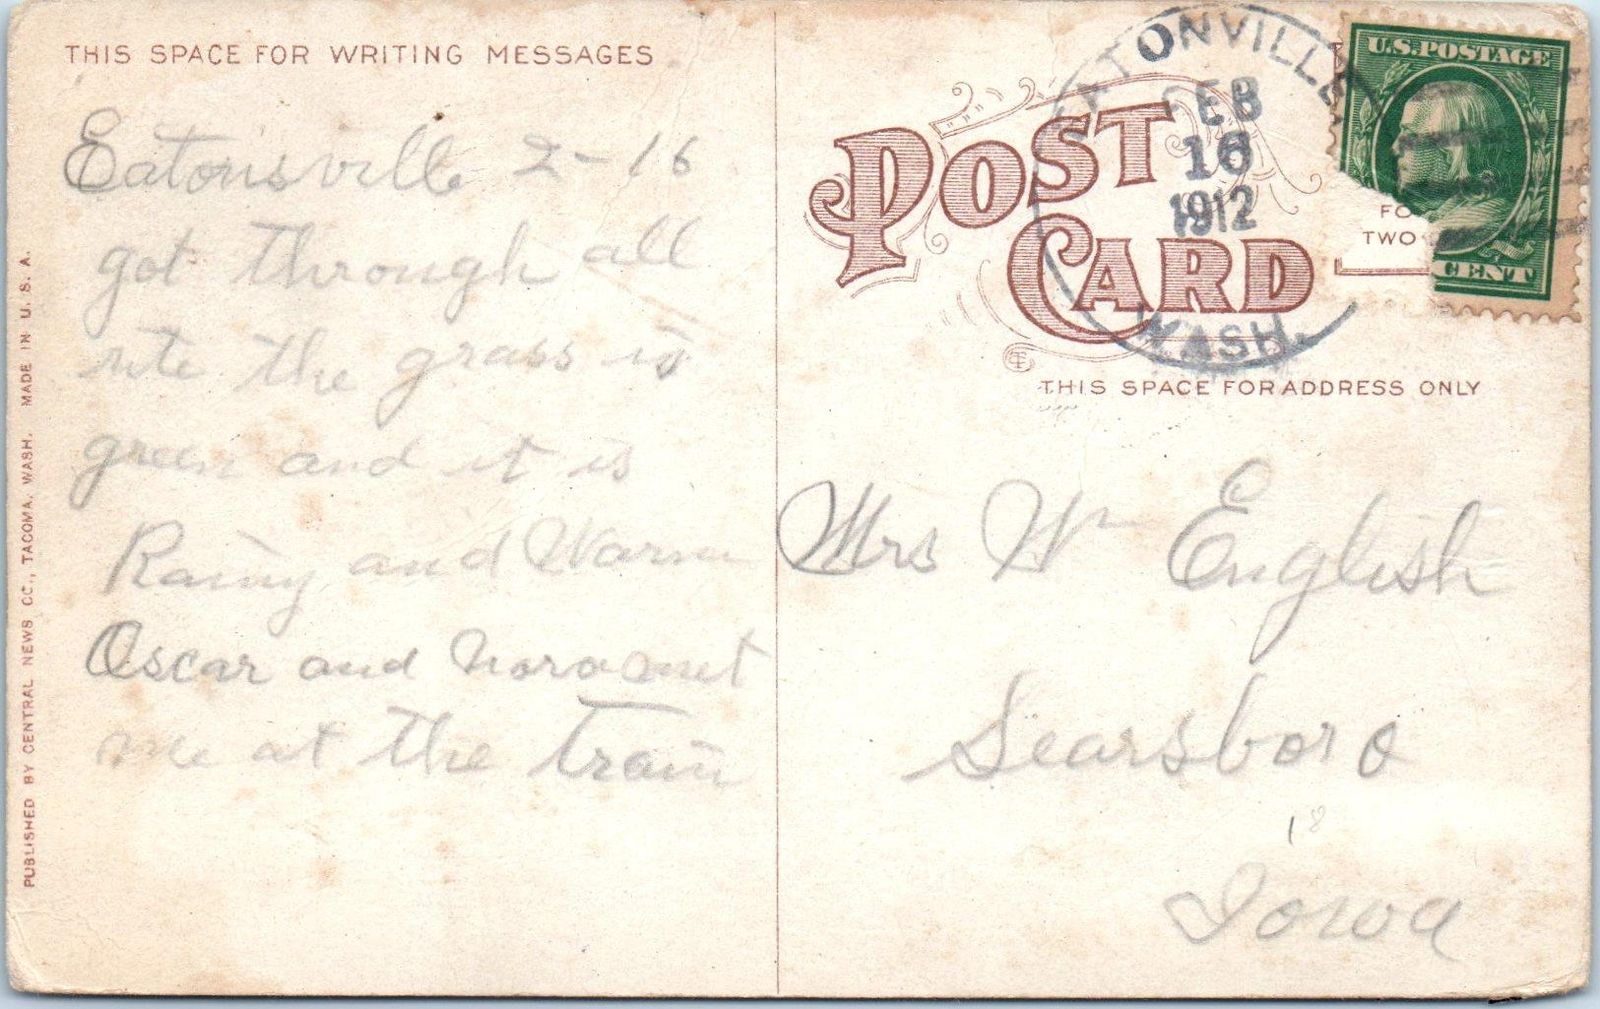 THIS SPACE FOR WRITING MESSAGES
Eatonsville 2-16
got through all
rite the grass is
green and it is
Rainy and Warm
Oscar and Nora met
me at the train
PUBLISHED BY CENTRAL NEWS CO., TACOMA, WASH. MADE IN U. S. A.
POST CARD
THIS SPACE FOR ADDRESS ONLY
ATONVILLE
FEB
16
1912
WASH.
U.S. POSTAGE
CENT
FO
TWO
Mrs Wm English
Searsboro
18
Iowa